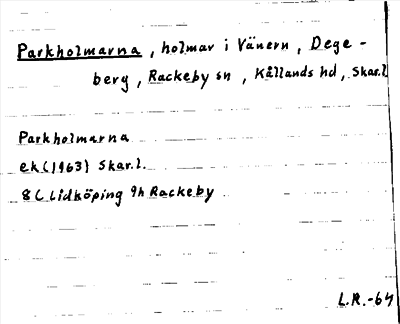 Parkholmarna, holmar i Vänern, Dege-
berg, Rackeby sn, Kållands hd, Skar.l
Parkholmarna
ek (1963) Skar.l.
8C Lidköping 9h Rackeby
L.R.-64